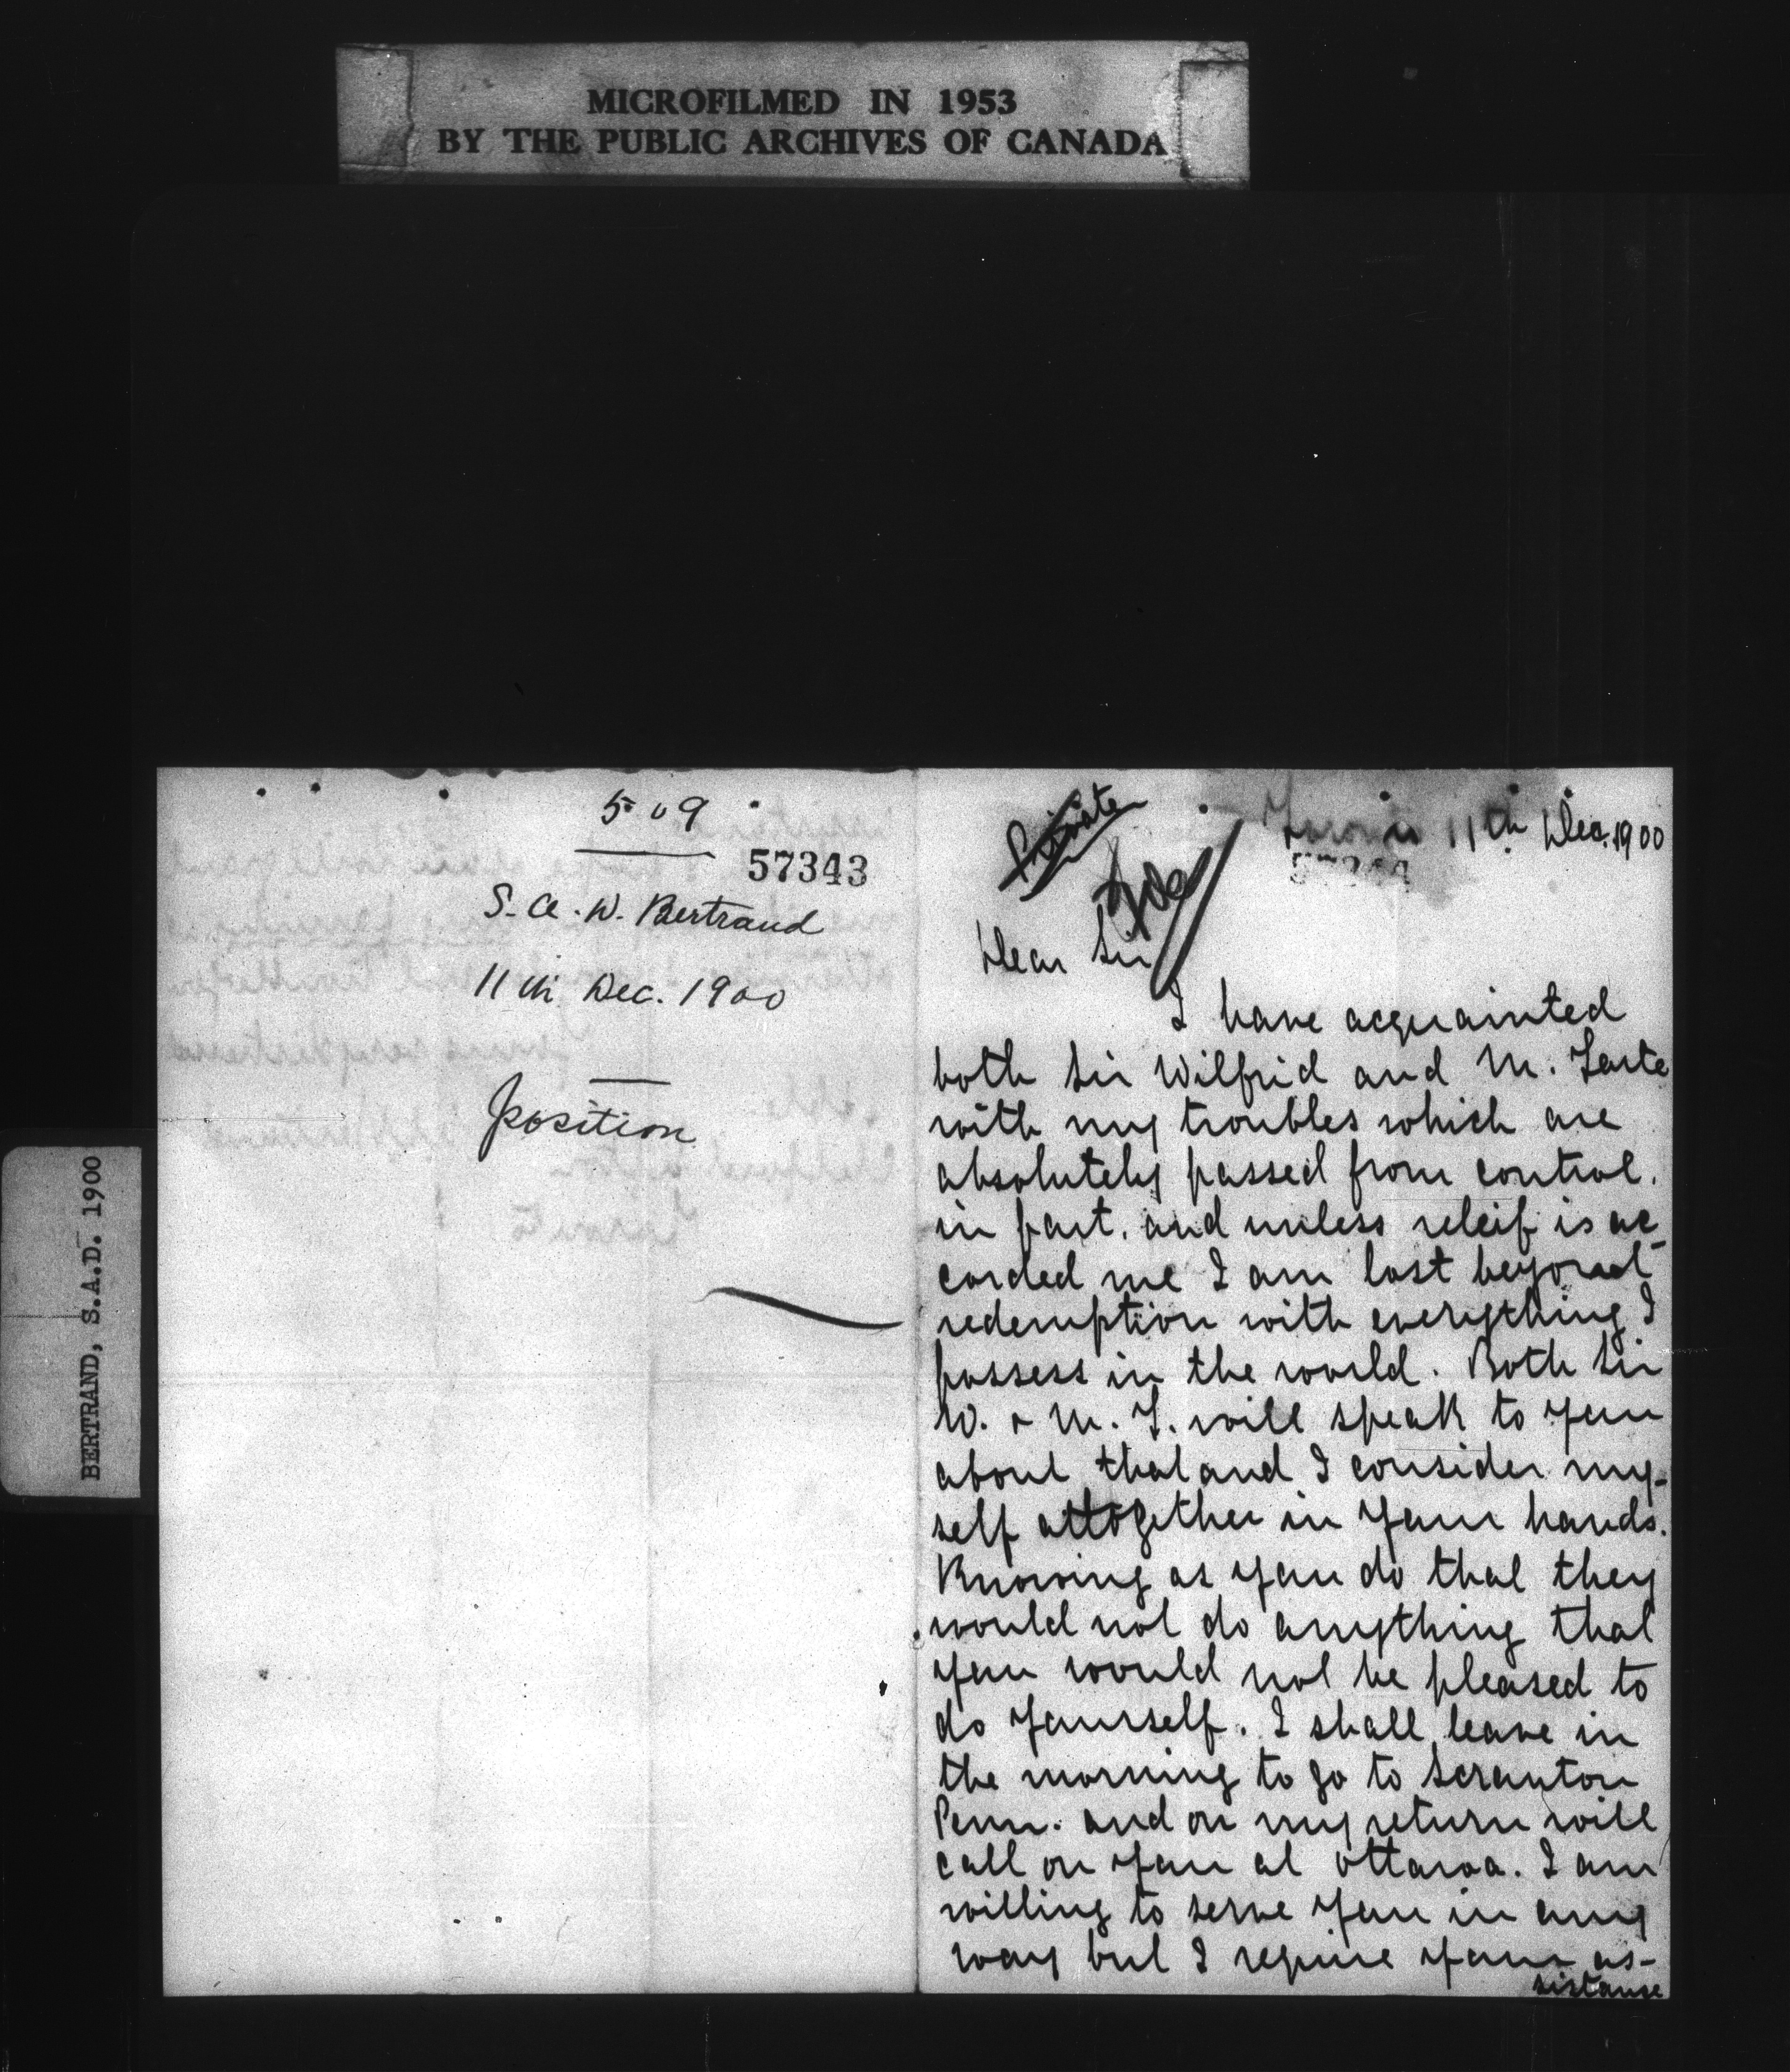 MICROFILMED IN 1953
BY THE PUBLIC ARCHIVES OF CANADA
BERTRAND, S.A.D. 1900
509
57343
S. A. W. Bertrand
11th Dec. 1900
position
Private
Toronto 11th Dec. 1900
Dear Sir
I have acquainted
both Sir Wilfrid and M. Tarte
with my troubles which are
absolutely passed from control.
in part. and unless releif is ac-
corded me I am lost beyond
redemption with everything I
possess in the world. Both Sir
W. & M. T. will speak to you
about that and I consider my-
self altogether in your hands.
Knowing as you do that they
would not do anything that
you would not be pleased to
do yourself. I shall leave in
the morning to go to Scranton
Penn. and on my return will
call on you at Ottawa. I am
willing to serve you in any
way but I require your as-
sistance